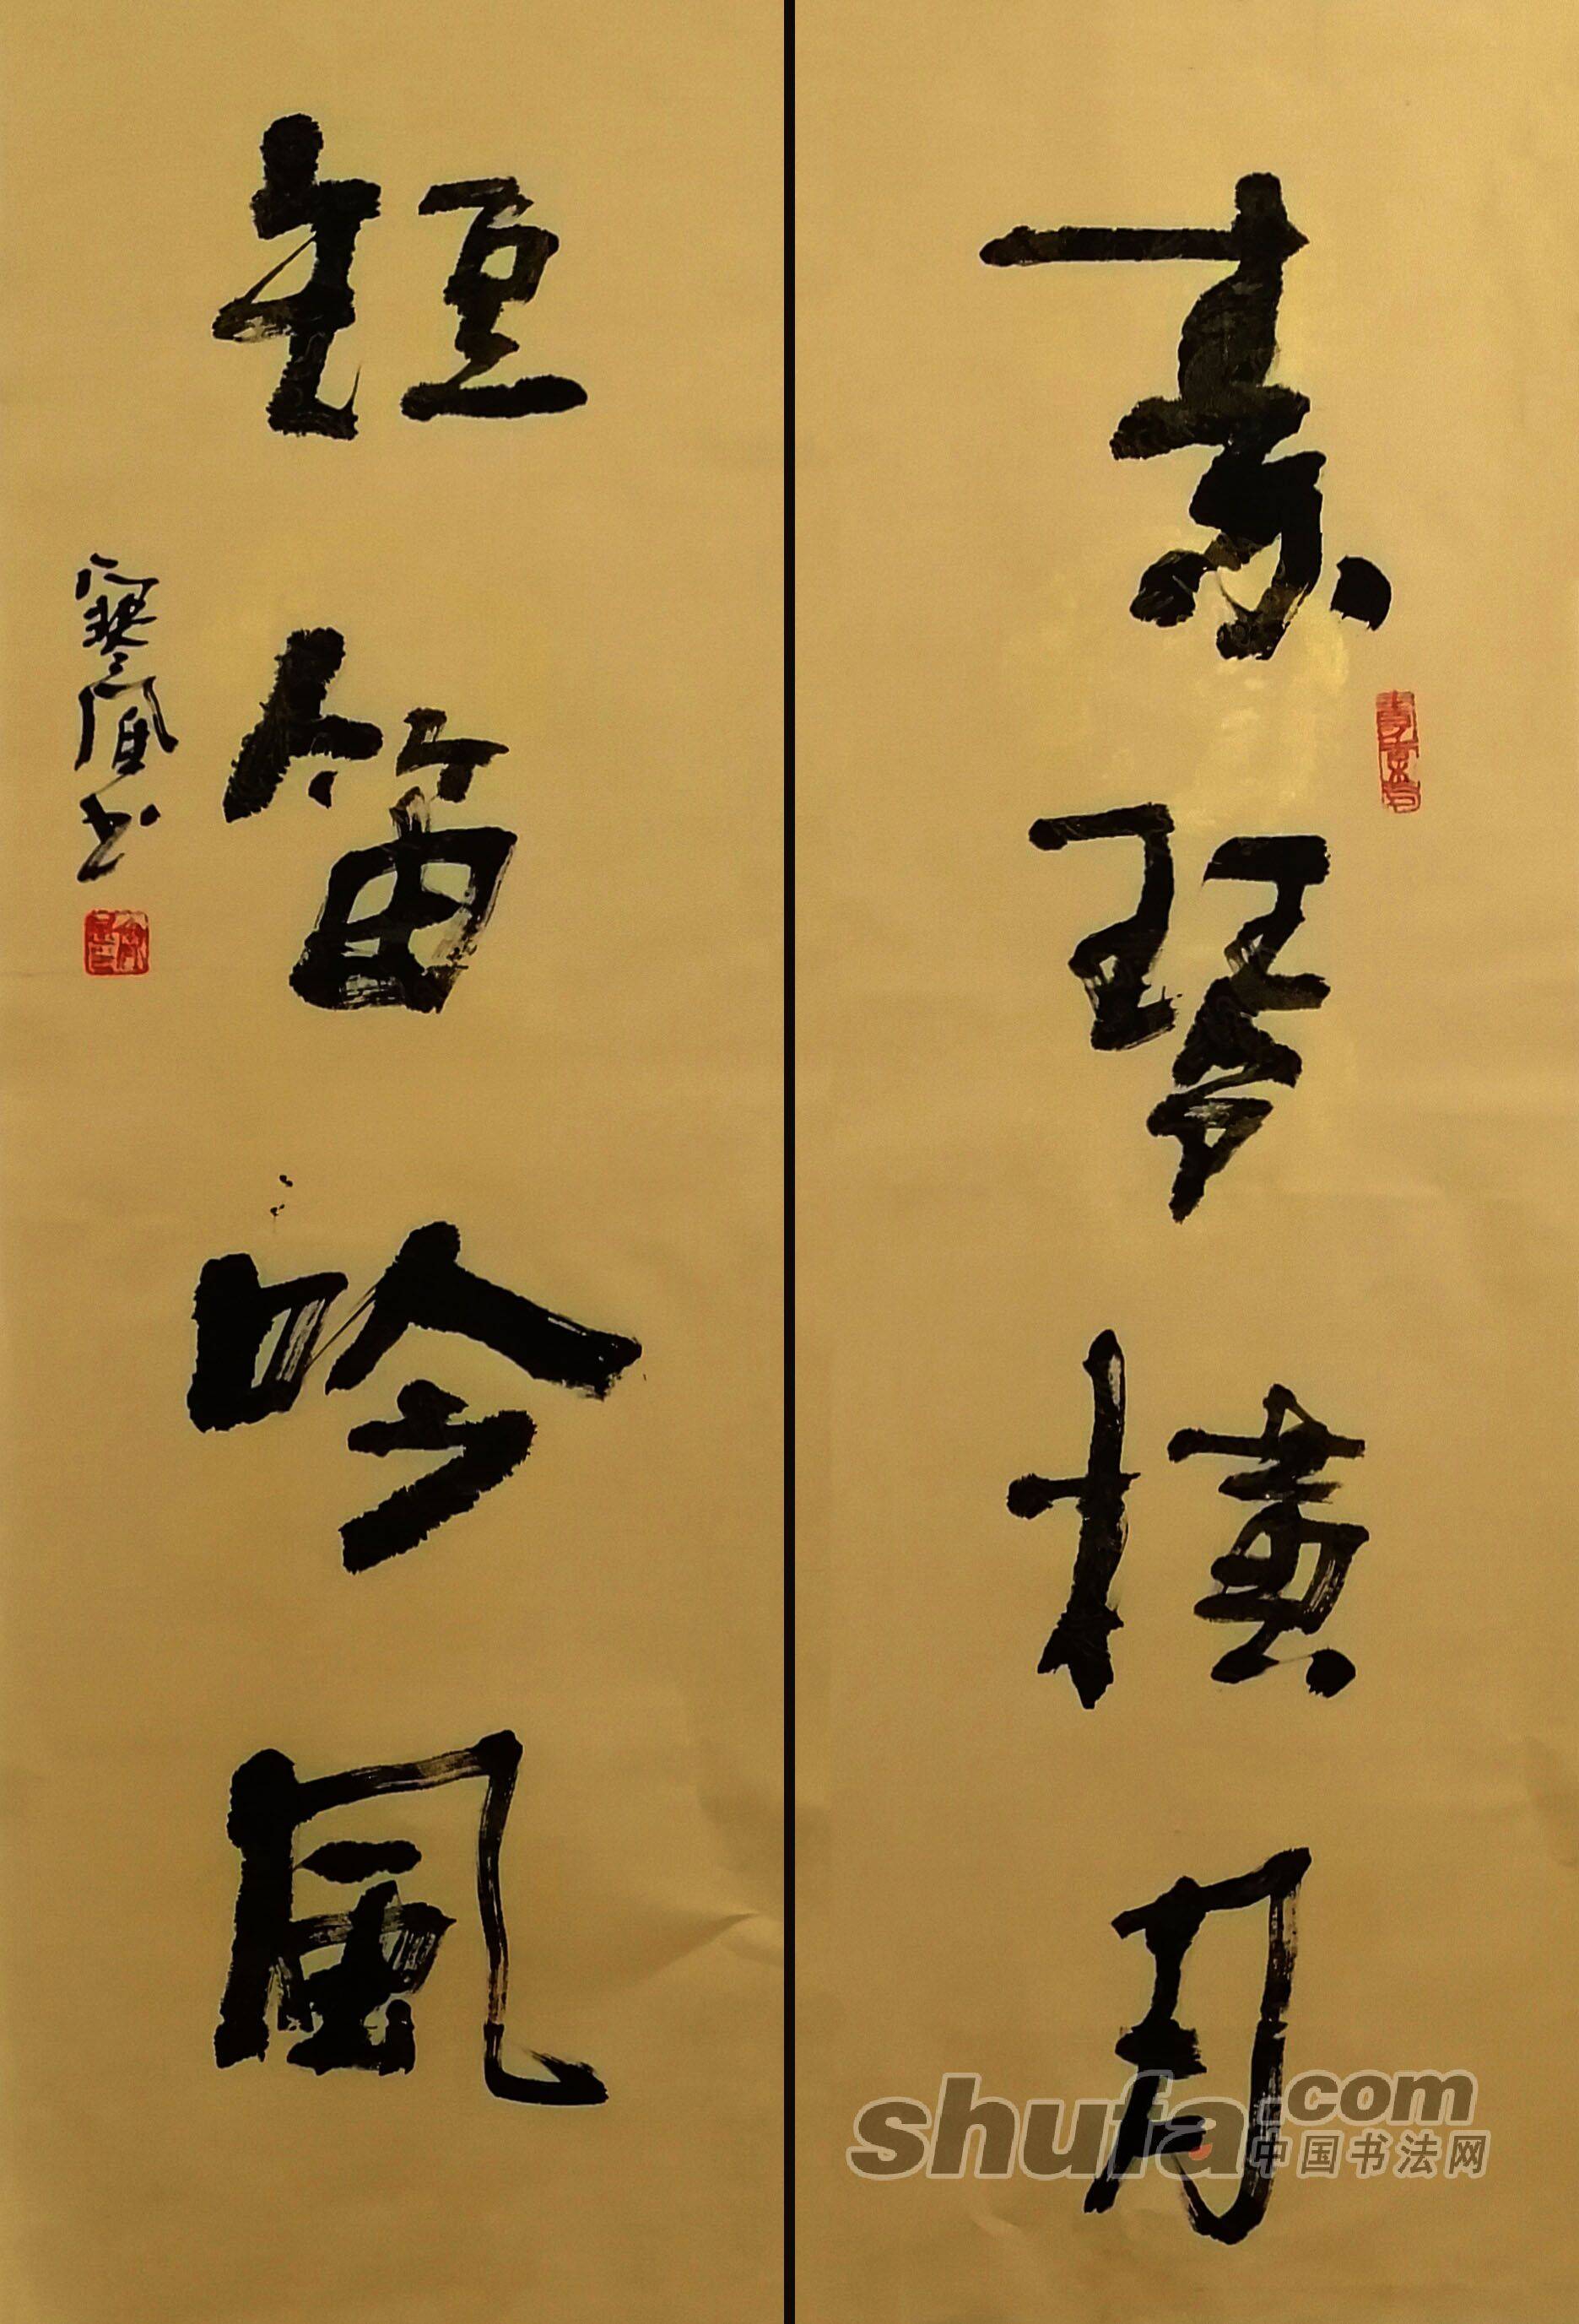 素琴横月
短笛吟风
shufa.com
中国书法网